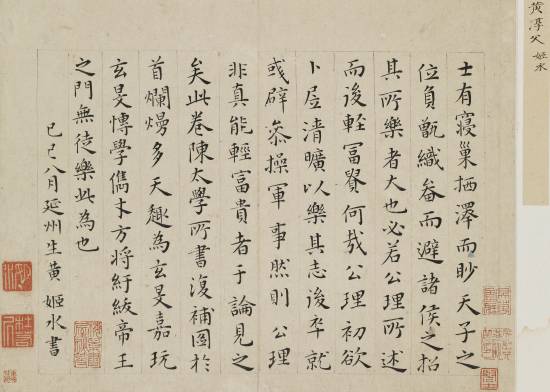 黄淳父 姬水
士有寝巢栖澤而眇天子之
位負甑織畚而避諸侯之招
其所樂者大也必若公理所述
而後輕冨貴何哉公理初欲
卜居清曠以樂其志後卒就
彧辟叅操軍事然則公理
非真能輕富貴者于論見之
矣此卷陳太學所書復補圖於
首爛熳多天趣為玄旻嘉玩
玄旻博學儁才方将紆紱帝王
之門無徒樂此為也
己巳八月延州生黄姬水書